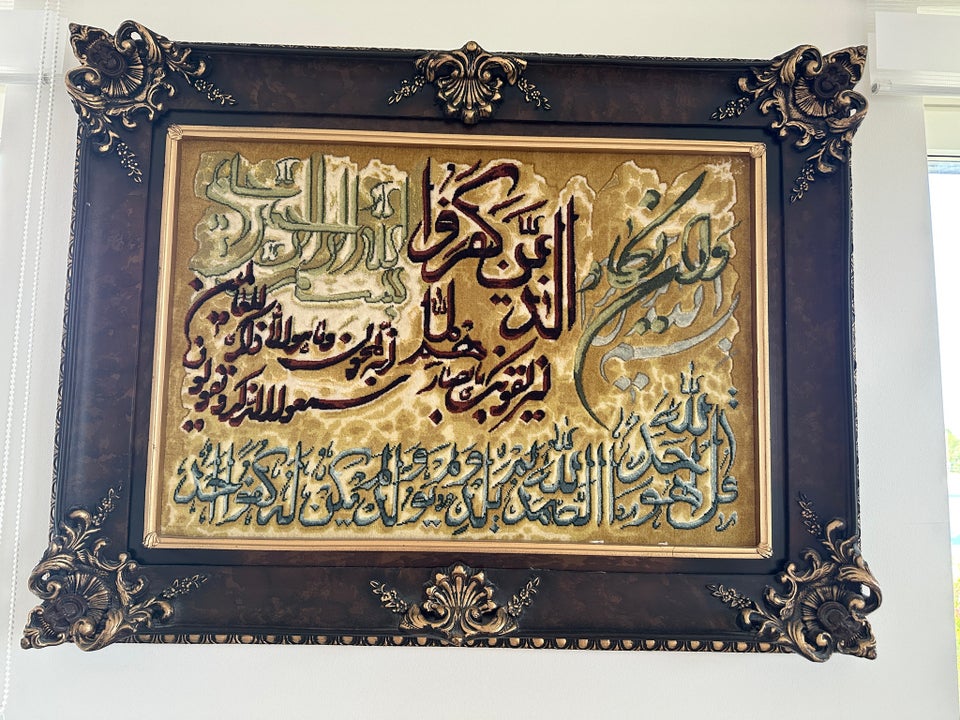 بسم الله
وان يكاد الذين كفروا
ليزلقونك بابصارهم لما
سمعوا الذكر ويقولون
انه لمجنون وما هو الا ذكر للعالمين
قل هو الله احد الله الصمد لم يلد ولم يولد ولم يكن له كفوا احد